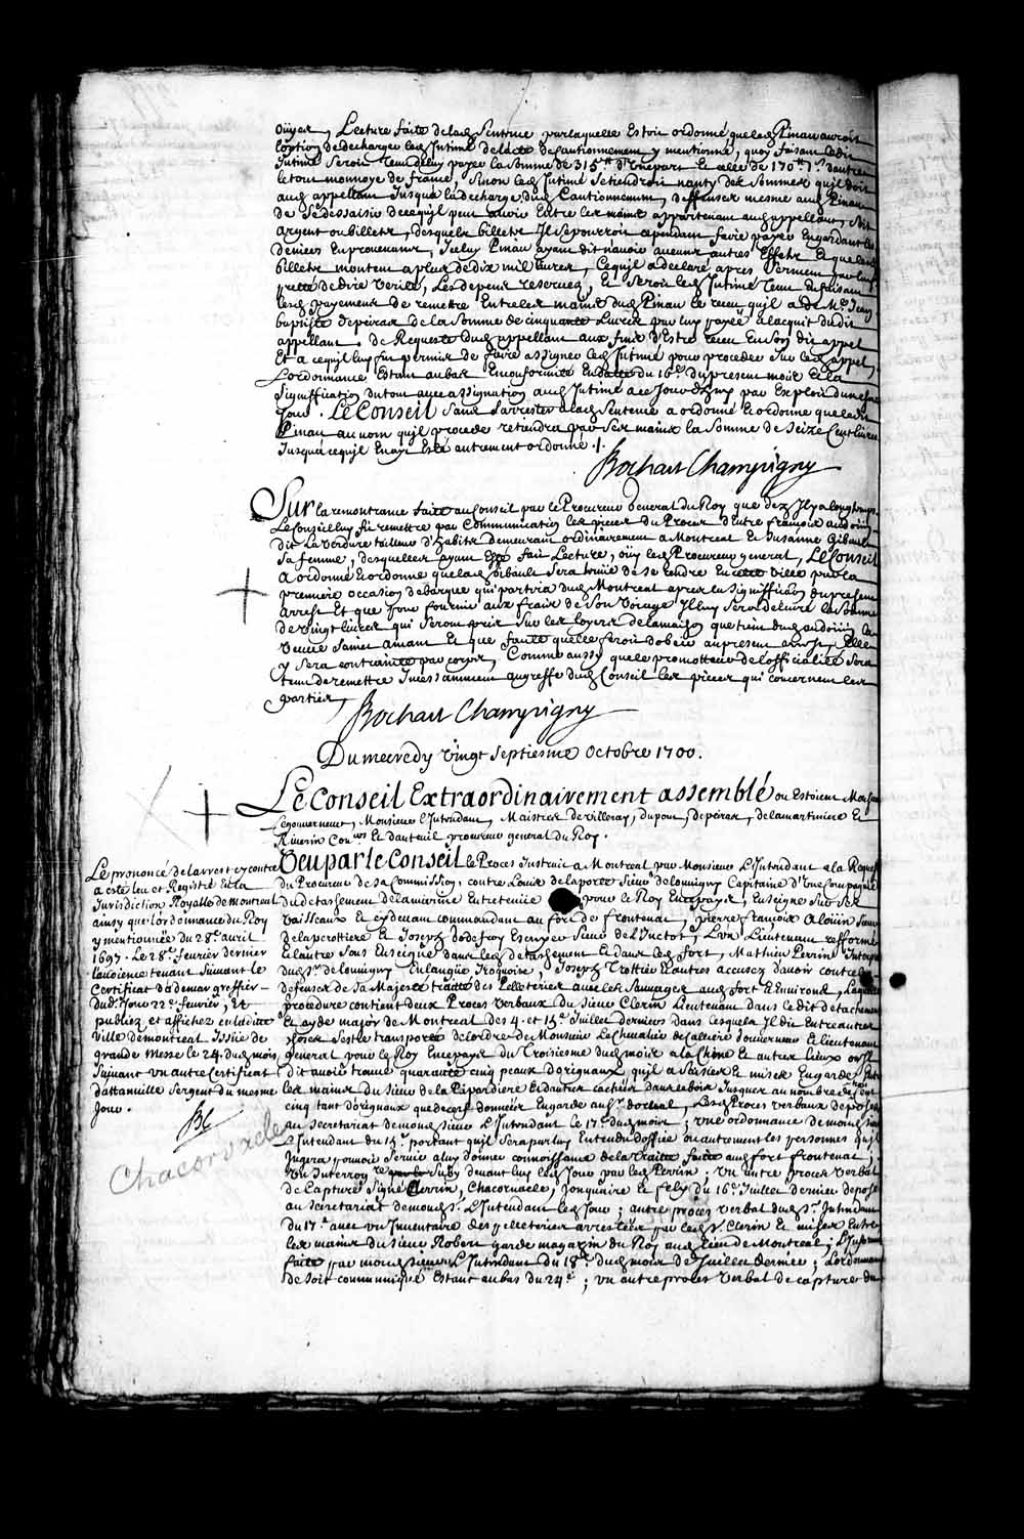 ouyes, Lecture faite de lad. Sentence par laquelle Estoit ordonné que led. Pinau auroit
loption de descharger led. Intimé de lacte de Cautionnement y mentionné, quoy faisant led.
Intimé Seroit tenu de luy payer la Somme de 315.lt d'une part et celle de 170.lt 7.s d'autre
le tout monnoye de france, Sinon led. Intimé Se tiendroit nanty des Sommes quil doit
aud. appellant Jusqua la descharge dud. Cautionnement, deffenses mesme aud. Pinau
de Se dessaisir de ce quil peut avoir Entre les mains appartenant aud. appellant, Soit
argent ou billets, desquels billets Il Se pourroit cependant faire payer En gardant les
deniers En provenans, Iceluy Pinau ayant dit n'avoir aucuns autres Effets Et que lesd.
billets montent a plus de dix mil livres, Ce quil a declaré apres Serment par luy
presté de dire verité, Les depens reservez, Et Seroit led. Intimé tenu En faisant
lesd. payemens de remettre Entre les mains dud. Pinau le receu quil a de Me. Jean
baptiste depeiras de la Somme de cinquante Livres par luy payée a lacquit dudit
appellant. de Requeste dud. appellant aux fins d'Estre receu En Son dit appel
Et a ce quil luy fut permis de faire assigner led. Intimé pour proceder Sur led. appel,
L'ordonnance Estant au bas En conformité En datte du 16.e du present mois Et la
Signiffication du tout avec assignation aud. Intimé a ce Jourd'huy par Exploit du mesme
Jour. Le Conseil Sans S'arrester a lad. Sentence a ordonné Et ordonne que led.
Pinau au nom quil procede retiendra par Ses mains la Somme de Seize Cent livres
Jusqua ce quil En ayt Esté autrement ordonné ./.
Bochart Champigny
Sur la remontrance faite au Conseil par le Procureur General du Roy que dez Il y a longtemps
Le Conseil luy fit remettre par Communication les pieces du Procez d'Entre françois audoüin
dit La verdure tailleur d'habits demeurant ordinairement a Montreal Et Susanne Gibault
Sa femme, desquelles ayant Esté fait Lecture, oüy led. Procureur general, Le Conseil
a ordonné Et ordonne que lad. Gibault Sera tenüe de Se rendre En cette ville par la
premiere occasion de barque qui partira dud. Montreal apres la Signiffication du present
arrest Et que pour fournir aux fraix de Son voiage Il luy Sera delivré la Somme
de vingt livres qui Seront pris Sur les loyers de la maison que tient dud. audoüin la
veuve Saint amant Et que faute quelle feroit d'obeir au present arrest, Elle
y Sera contrainte par corps, Comme aussy que le promotteur de l'officialité Sera
tenu de remettre Incessamment au greffe dud. Conseil les pieces qui concernent les
parties.
Bochart Champigny
Du mecredy vingt Septiesme Octobre 1700.
Le Conseil Extraordinairement assemblé ou Estoient Monsieur
Le gouverneur, Monsieur l'Intendant, Maistres de villeray, dupont, depeiras, delamartiniere Et
Riverin Con.ers Et dauteuil procureur general du Roy.
Veu par le Conseil le Procez Instruit a Montreal par Monsieur L'Intendant a la Requeste
du Procureur de Sa Commission, contre Louis de laporte Sieur de louvigny Capitaine d'Une Compagnie
du detachement de la marine Entretenüe pour le Roy En ce pays, Enseigne Sur Ses
vaisseaux Et cy devant commandant au fort de frontenac, pierre françois aloüin Sieur
de laperottiere Et Joseph Godefroy Escuyer Sieur de Vieuctot, L'un Lieutenant refformé
Et l'autre Sous Enseigne dans led. detachement Et dans led. fort, Matthieu Perrin Interprete
dud. Sr. de louvigny En langue Iroquoise, Joseph Trottier Et autres accusez d'avoir contre les
defenses de Sa Majesté traitté des Pelleteries avec les Sauvages aud. fort Et Environs, Laquelle
procedure contient deux Procez verbaux du Sieur Clerin Lieutenant dans le dit detachement
Et ayde major de Montreal des 4. et 15.e Juillet derniers dans lesquels Il dit Entre autres
choses S'estre transporté de l'ordre de Monsieur Le Chevalier de Calliere Gouverneur Et lieutenant
general pour le Roy En ce pays du Troisiesme dud. mois a la Chine Et autres lieux ou Il
dit avoir trouvé quarante cinq peaux d'orignaux quil a Saisies Et mises En garde Entre
les mains du Sieur de la Ripardiere Et d'autres cachées dans le bois Jusques au nombre de cent
cinq tant d'orignaux que de cerfs données En garde au Sr. , Lesd. Procez verbaux deposez
au Secretariat de mond. Sieur L'Intendant le 17.e dud. mois ; une ordonnance de mond. Sieur
L'Intendant du 15.e portant quil Sera par luy Entendu d'office ou autrement les personnes quil
Jugera pouvoir Servir a luy donner connoissance de la Traitte faite aud. fort frontenac ;
Un Interrog.re Suby devant luy led. Jour par led. Perrin ; Un autre procez verbal
de Capture Signé Clerin, Chacornacle, Jonquaire Et felix du 16.e Juillet dernier deposé
au Secretariat de mond. Sr. L'Intendant led. Jour ; autre procez verbal dud. Sr. Intendant
du 17.e avec un Inventaire des pelleteries arrestées par led. Sr. Clerin Et mises Entre
les mains du Sieur Robert garde magazin du Roy aud. lieu de Montreal ; L'Information
faite par mond. Sieur L'Intendant du 18.e dud. mois de Juillet dernier ; L'ordonnance
de Soit communiqué Estant au bas du 24.e ; un autre procez verbal de capture du
Le prononcé de larrest cy contre
a esté leu et Registré En la
Jurisdiction Royalle de montreal
ainsy que l'ordonnance du Roy
y mentionnée du 28.e avril
1697. Le 28.e fevrier dernier
l'audience tenant Suivant le
Certificat d'ademar greffier
dud. Jour 22.e fevrier, Et
publiez et affichez en ladite
ville de montreal Issüe de
grande messe le 24. dud. mois
Suivant un autre Certificat
dattanville Sergent du mesme
Jour.
Chacornacle